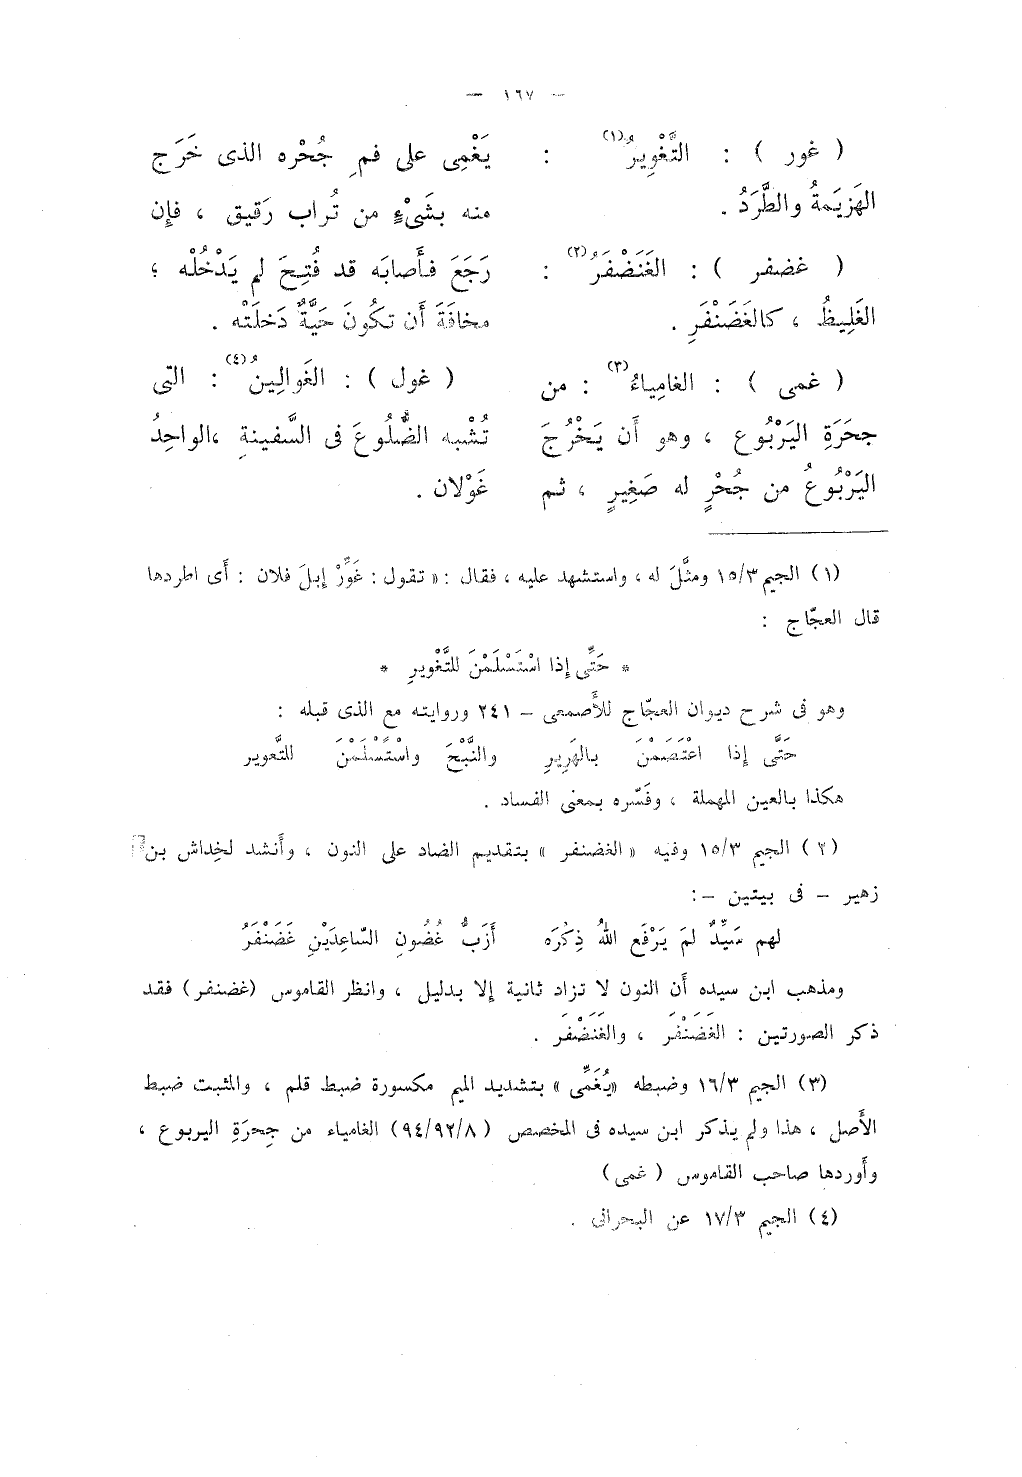 — ١٦٧ —
( غور ) : التَّغْوِيرُ(١) :
الهَزِيَمةُ والطَّرَدُ .
( غضفر ) : الغَنَضْفَرُ(٢) :
الغَلِيظُ ، كالغَضَنْفَرِ .
( غمى ) : الغامِياءُ(٣) : من
جحَرَةِ اليَرْبُوع ، وهو أَن يَخْرُجَ
اليَرْبُوعُ من جُحْرٍ له صَغِيرٍ ، ثم
يَغْمِى على فمِ جُحْره الذى خَرَج
منه بشَىْءٍ من تُراب رَقيق ، فإِن
رَجَعَ فأَصابَه قد فُتِحَ لم يَدْخُلْه ؛
مخافَةَ أَن تكُونَ حَيَّةٌ دَخلَتْه .
( غول ) : الغَوالِينُ(٤) : التى
تُشْبه الضُّلُوعَ فى السَّفينةِ ،الواحِدُ
غَوْلان .
(١) الجيم ١٥/٣ ومثَّلَ له ، واستشهد عليه ، فقال : « تقول : غَوِّرْ إبلَ فلان : أَى اطردها
قال العجّاج :
* حَتَّى إذا اسْتَسْلَمْنَ للتَّغْويرِ *
وهو فى شرح ديوان العجّاج للأَصمعى – ٢٤١ وروايته مع الذى قبله :
حَتَّى إذا اعْتَصَمْنَ بالهَرِيرِ والنَّبْحَ واسْتَسْلَمْنَ للتَّعوير
هكذا بالعين المهملة ، وفَسّره بمعنى الفساد .
(٢) الجيم ١٥/٣ وفيه « الغضنفر » بتقديم الضاد على النون ، وأَنشد لخِداش بن
زهير – فى بيتين –:
لهم سَيِّدٌ لمَ يَرْفَعِ اللهُ ذِكْرَه أَزَبُّ غُضُونِ السّاعِدَيْنِ غَضَنْفَرُ
ومذهب ابن سيده أَن النون لا تزاد ثانية إلا بدليل ، وانظر القاموس (غضنفر) فقد
ذكر الصورتين : الغَضَنْفَر ، والغَنَضْفَر .
(٣) الجيم ١٦/٣ وضبطه «يُغَمِّى » بتشديد الميم مكسورة ضبط قلم ، والمثبت ضبط
الأَصل ، هذا ولم يذكر ابن سيده فى المخصص (٩٤/٩٢/٨) الغامياء من جِحرَةِ اليربوع ،
وأَوردها صاحب القاموس ( غمى)
(٤) الجيم ١٧/٣ عن البحرانى .